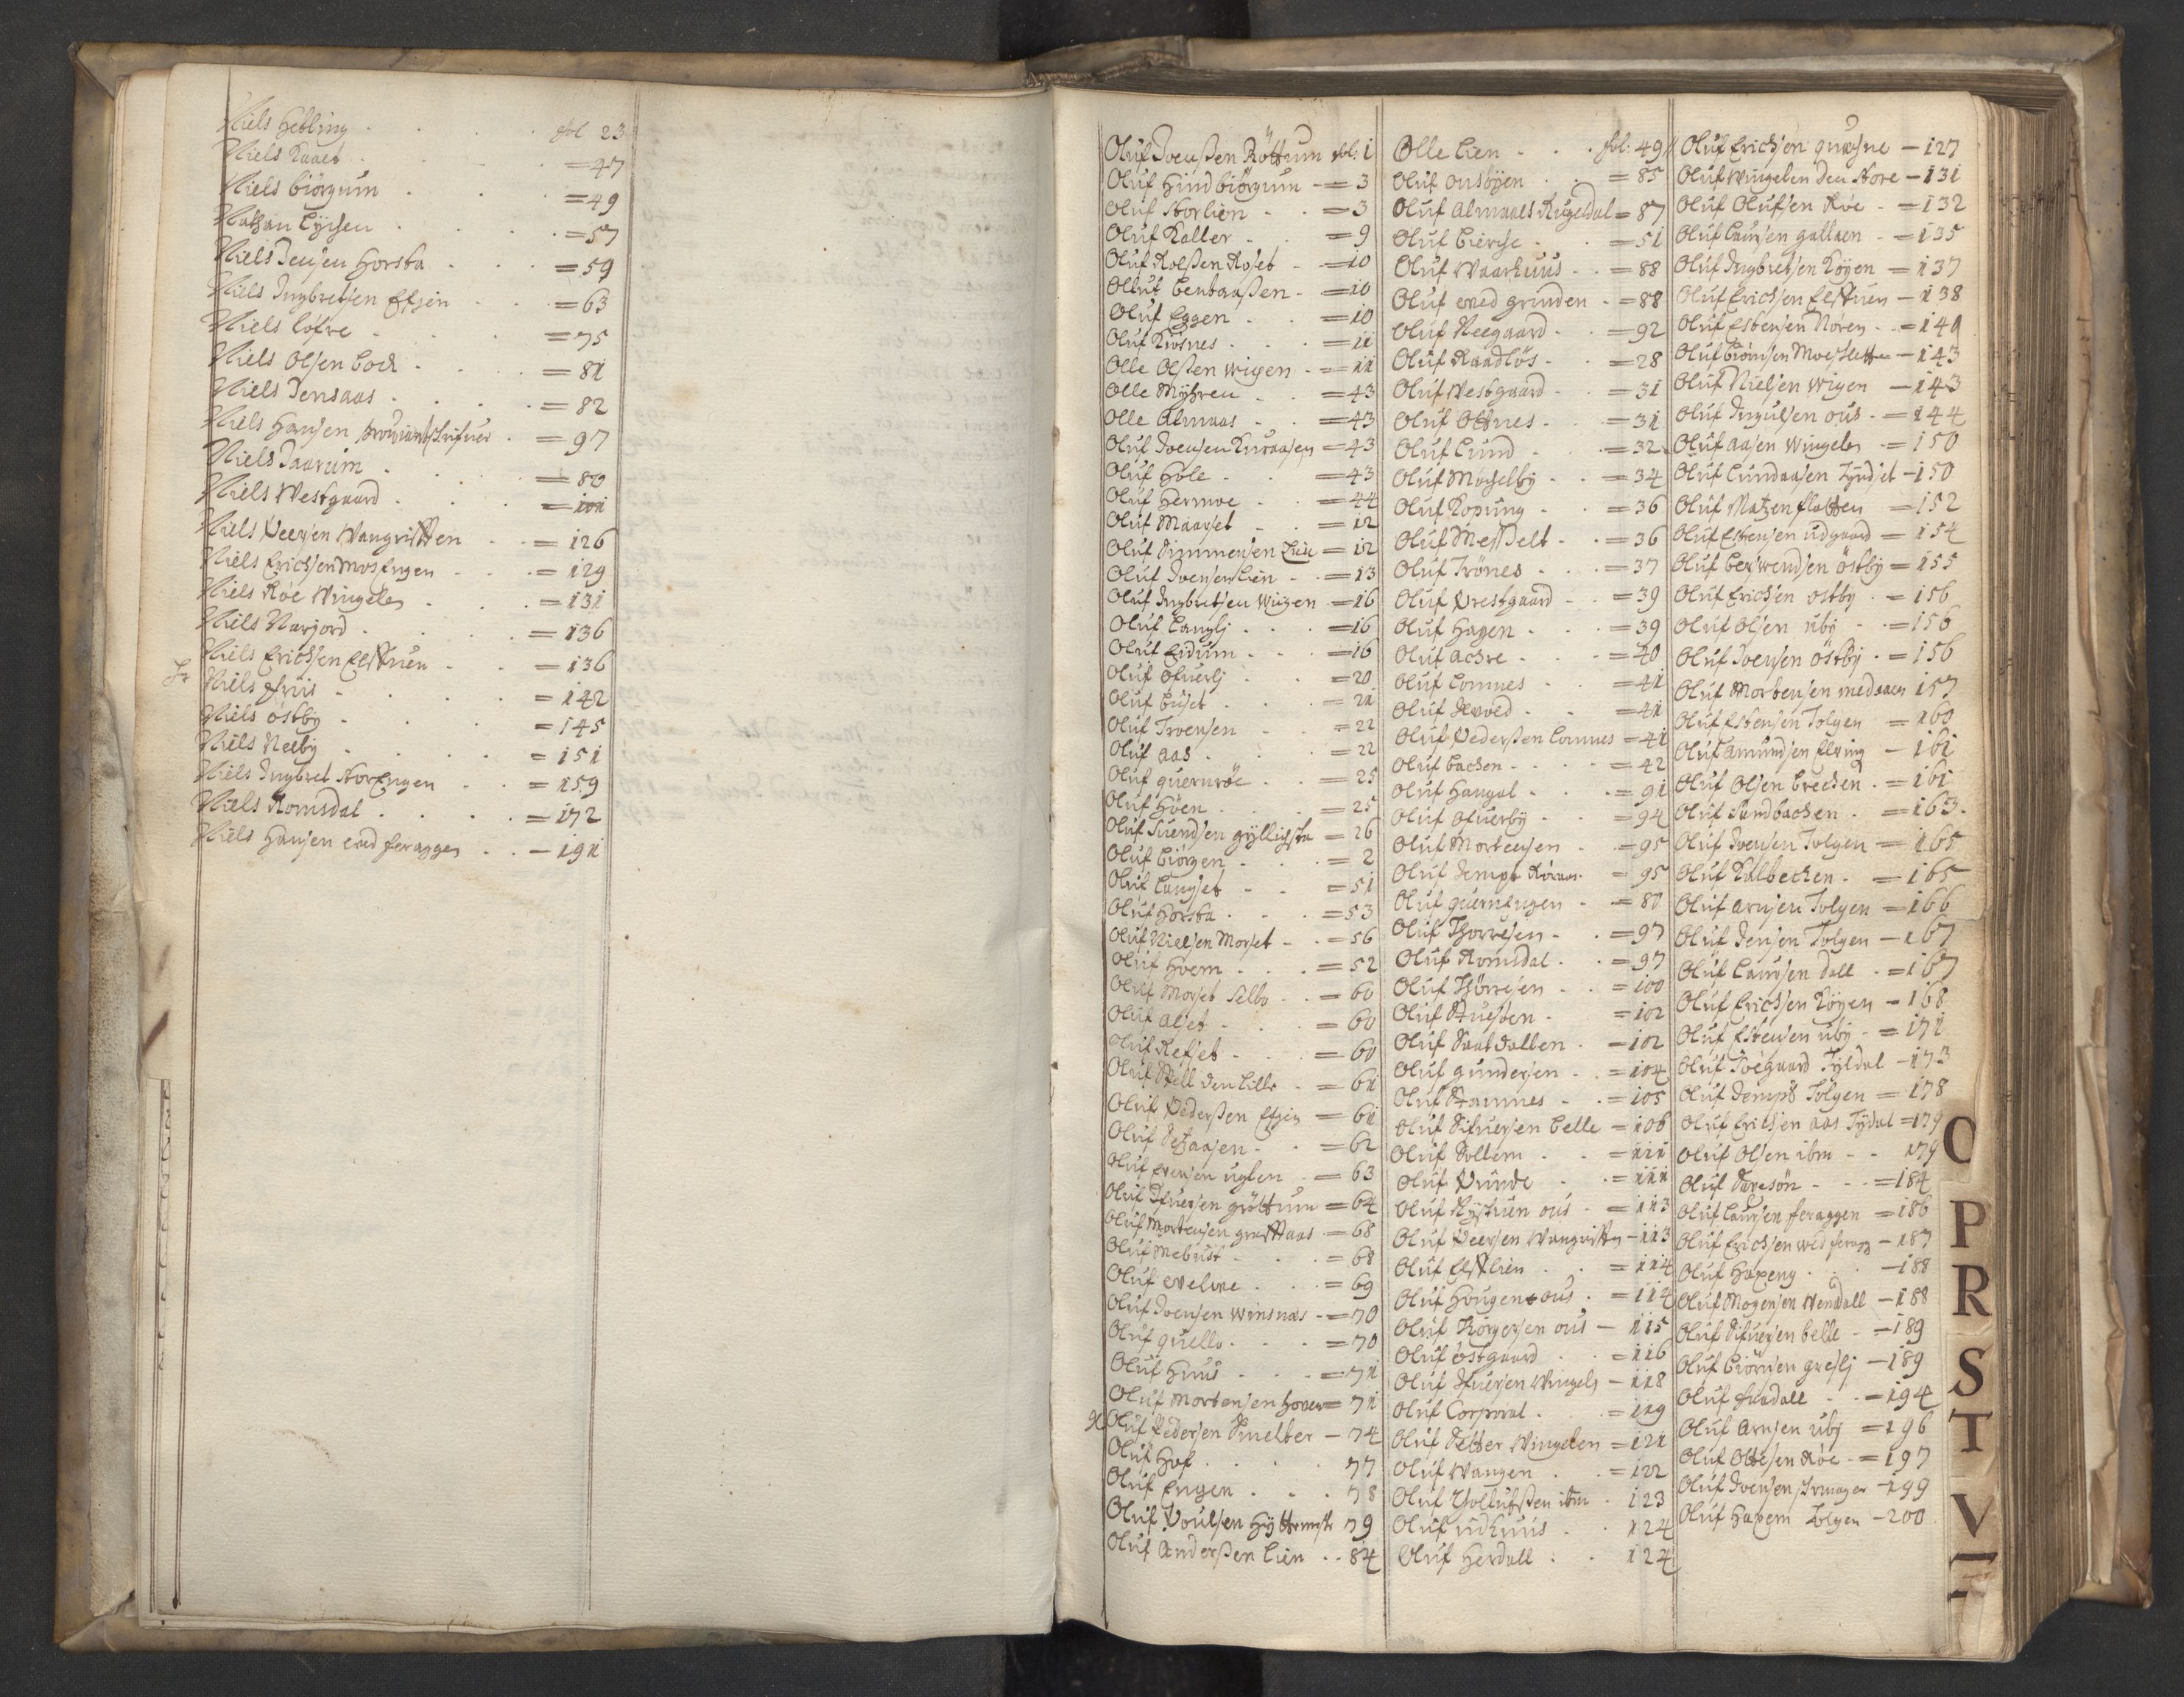 Niels Hebling fol 23
Niels Kaaet = 47
Niels Biörgum = 49
Nathan Lysen = 57
Niels Jensen Horsta = 59
Niels Ingbretsen Efsen = 63
Niels Löfre = 75
Niels Olsen Bock = 81
Niels Jensaas = 82
Niels Hansen Proviantschrifuer = 97
Niels Daarum = 80
Niels Westgaard = 101
Niels Peersen Wangrøften = 126
Niels Erichsen Mos Engen = 129
Niels Röe Wingelen = 131
Niels Narjord = 136
Niels Erichsen Elstuen = 136
Niels Friis = 142
Niels östby = 145
Niels Neeby = 151
Niels Ingbret StorEngen = 159
Niels Romsdal = 172
Niels Hansen wed feraggen - 191
Oluf Joensen Röttum fol: 1
Oluf Hindbiörgum = 3
Oluf Storlien = 3
Oluf Kaller = 9
Oluf Rolßen Roset = 10
Oluf Bentaaßen = 10
Oluf Eggen = 10
Oluf Krosnes = 11
Olle Olßen Wigen = 11
Olle Myhren = 43
Olle Almaas = 43
Oluf Joensen Kuraasen = 43
Oluf Hole = 43
Oluf Hermoe = 44
Oluf Maarset = 12
Oluf Simmensen Lien = 12
Oluf Joensen Lien = 13
Oluf Ingbretsen Wigen = 16
Oluf Langlj = 16
Oluf Eidum = 16
Oluf Ofuerlj = 20
Oluf Buset = 21
Oluf Iversen = 22
Oluf Aas = 22
Oluf quernröe = 25
Oluf Höen = 25
Oluf Suendsen gyllichsta = 26
Oluf Biörgen = 2
Oluf Langset = 51
Oluf Horsta = 53
Oluf Nielsen Morset = 56
Oluf Hoem = 52
Oluf Morset Selbo = 60
Oluf Alset = 60
Oluf Refset = 60
Oluf Nell den Lille = 61
Oluf Pederßen Efsen = 61
Oluf Setaasen = 62
Oluf Evensen uglen = 63
Oluf Ifuersen gröttum = 64
Oluf Mortensen grøttaas = 68
Oluf Mebust = 68
Oluf evelme = 69
Oluf Joensen Winsnæs = 70
Oluf quello = 70
Oluf Huus = 71
Oluf Mortensen Hoven = 71
Oluf Pedersen Smelter - 74
Oluf Hof 77
Oluf Engen 78
Oluf Poulsen Hyttemester 79
Oluf Anderßen Lien 84
Olle Lien fol: 49
Oluf Ousöyen = 85
Oluf Almaaes Rugeldal = 87
Oluf Bierche = 51
Oluf Waarhuus = 88
Oluf wed grinden = 88
Oluf Neegaard = 92
Oluf Raadlös = 28
Oluf Westgaard = 31
Oluf Ottnes = 31
Oluf Lund = 32
Oluf Moeselby = 34
Oluf Kopung = 36
Oluf Messelt = 36
Oluf Trönes = 37
Oluf Prestgaard = 39
Oluf Hagen = 39
Oluf Achre = 40
Oluf Lomnes = 41
Oluf Derved = 41
Oluf Pederßen Lomnes = 41
Oluf Bachen = 42
Oluf Haugal = 91
Oluf Ofuerby = 94
Oluf Mortensen = 95
Oluf Jempt Röraas = 95
Oluf quernEngen = 80
Oluf Thorresen = 97
Oluf Romsdal = 97
Oluf Thörresen = 100
Oluf Stuesten = 102
Oluf Saatdallen = 102
Oluf gundersen = 104
Oluf Stamnes = 105
Oluf Sifuersen Belle = 106
Oluf Soltem = 111
Oluf Runde = 111
Oluf Rystuen ous = 113
Oluf Peersen Wangrøften = 113
Oluf Elstlien = 114
Oluf Hougen ous = 114
Oluf Börgersen ous - 115
Oluf östgaard = 116
Oluf Ifuersen Wingelen - 118
Oluf Corporal = 119
Oluf Setter Wingelen = 121
Oluf Wangen = 122
Oluf Tollufßen ibm 123
Oluf udhuus 124
Oluf Herdall 124
Oluf Erichsen quæsne - 127
Oluf Wingelen den Store - 131
Oluf Olufsen Röe = 132
Oluf Laursen gallaen = 135
Oluf Ingbretsen Köyen = 137
Oluf Erichsen Elstuen - 138
Oluf Estensen Nören = 140
Oluf Biörnsen Moesletten - 143
Oluf Nielsen Wigen - 143
Oluf Ingulsen ous = 144
Oluf Aasen Wingelen = 150
Oluf Lundaasen Tyndset - 150
Oluf Matzen flatten = 152
Oluf Estensen udgaard = 154
Oluf Berwendsen östby = 155
Oluf Erichsen ostby = 156
Oluf Olsen uby = 156
Oluf Joensen östby = 156
Oluf Mortensen medaaen 157
Oluf Estensen Tolgen = 160
Oluf Amundsen Elving - 161
Oluf Olsen Brechen = 161
Oluf Sandbachen = 163
Oluf Joensen Tolgen = 165
Oluf Kalbechen = 165
Oluf Arnsen Tolgen = 166
Oluf Jensen Tolgen - 167
Oluf Laursen Dall = 167
Oluf Erichsen Köyen - 168
Oluf Estensen uby = 171
Oluf Toegaard Tyldal - 173
Oluf Jempt Tolgen = 178
Oluf Erichsen aas Tydal = 179
Oluf Olsen ibm 179
Oluf Saresön = 184
Oluf Laursen feraggen = 186
Oluf Erichsen wed feragg - 187
Oluf Haxeng - 188
Oluf Mogensen Wendall - 188
Oluf Sifuersen belle - 189
Oluf Biörnsen greslj - 189
Oluf fundall = 194
Oluf Arnsen uby = 196
Oluf Ottesen Röe = 197
Oluf Joensen - 199
Oluf Haxem Tolgen - 200
O
P
R
S
T
V